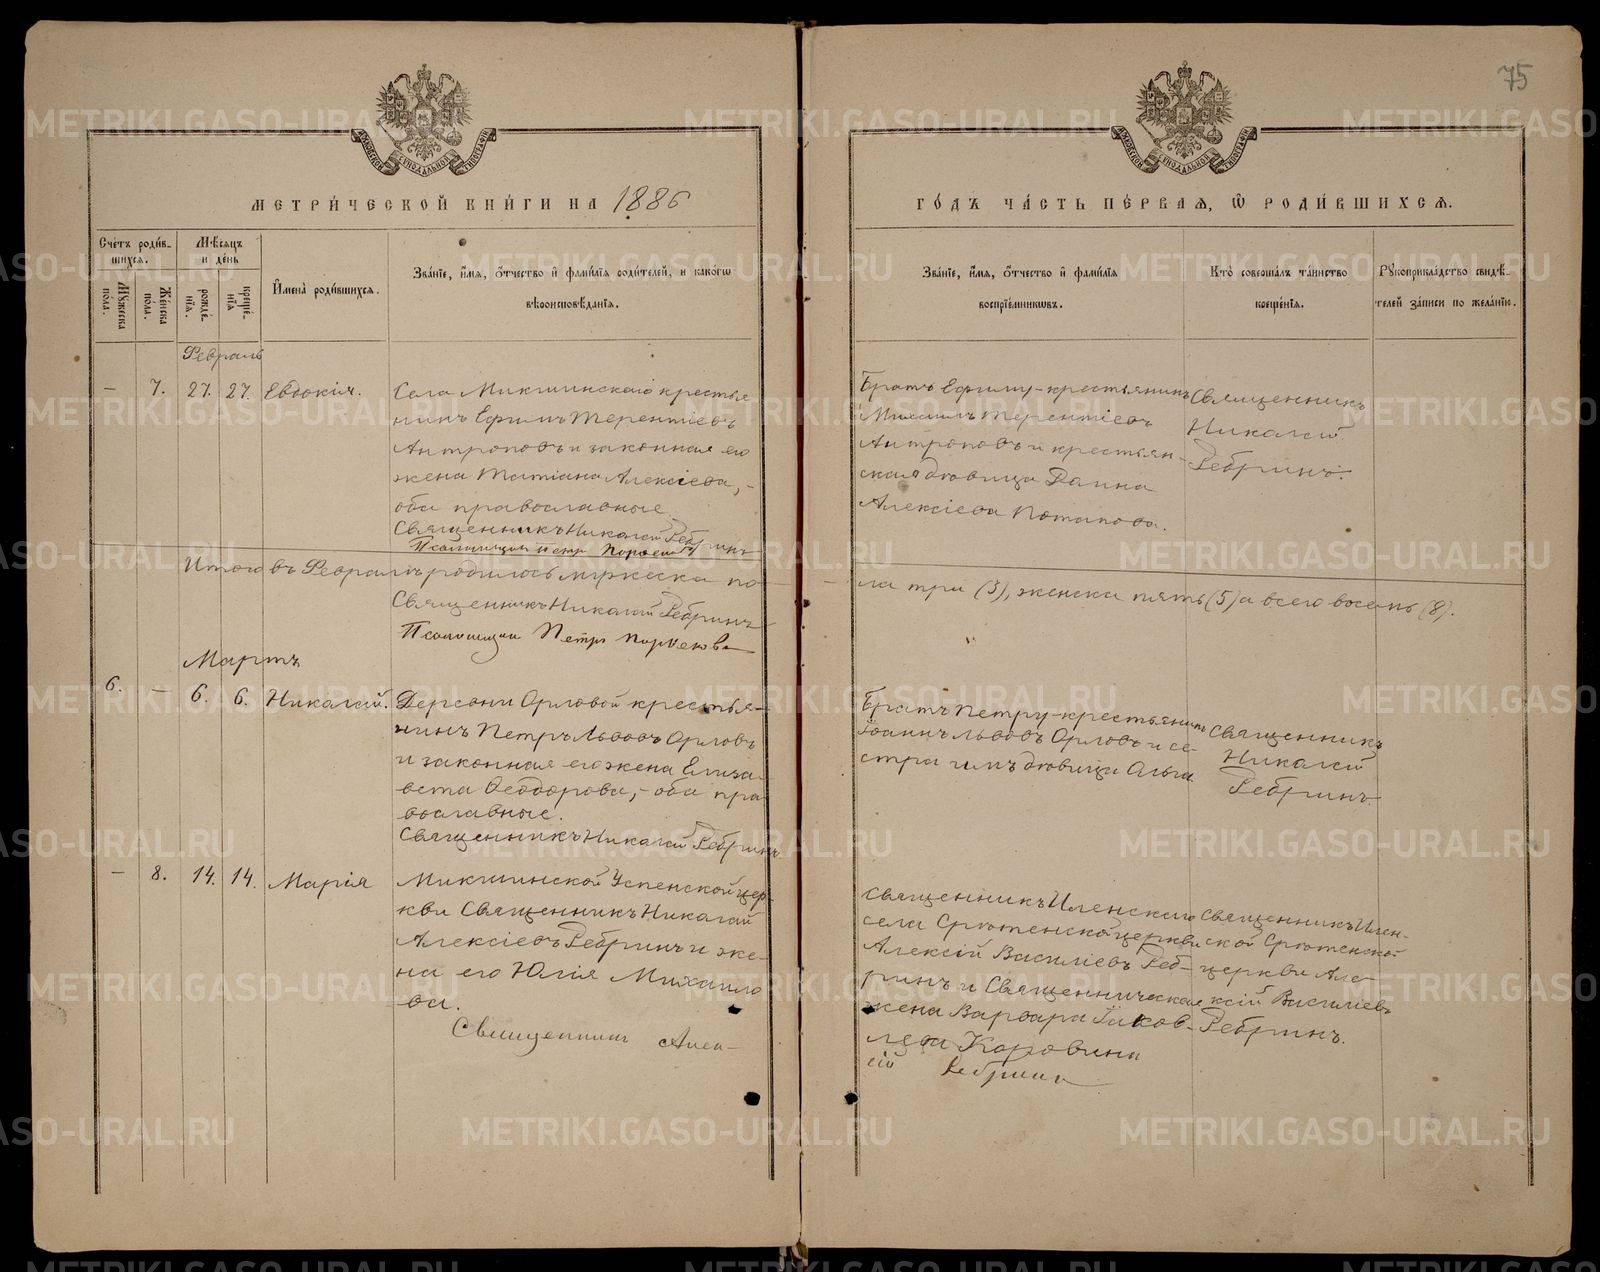 75
МОСКОВСКОЙ СѴНОДАЛЬНОЙ ТИПОГРАФІИ
МОСКОВСКОЙ СѴНОДАЛЬНОЙ ТИПОГРАФІИ
МЕТРИ́ЧЕСКОЙ КНИ́ГИ НА 1886
ГО́ДЪ ЧА́СТЬ ПЕ́РВАЯ, Ѽ РОДИ́ВШИХСЯ.
Сче́тъ роди́в-
шихся.
Мꙋ́жеска пола.
Же́нска пола.
Мѣ́сяцъ
и де́нь
рожде́нїѧ.
креще́нїѧ.
И҆мена̀ роди́вшихся.
Зва́нїе, и҆́мя, ѻ҆́тчество и҆ фами́лїя роди́телей, и какогѡ
вѣроисповѣ́данїя.
Зва́нїе, и҆́мя, ѻ҆́тчество и҆ фами́лїя
воспрїе́мниковъ.
Кто̀ соверша́лъ та́инство
креще́нїя.
Рꙋкоприкла́дство свидѣ́-
телей за́писи по жела́нїю.
Февраль
– 7. 27. 27. Евдокія.
Села Микшинскаго крестья
нинъ Ефимъ Терентіевъ
Антроповъ и законная его
жена Татіана Алексіева, –
оба православные.
Священникъ Николай Ребринъ
Псаломщик Петр
Братъ Ефиму – крестьянинъ
Михаилъ Терентіевъ
Антроповъ и крестьян-
ская дѣвица
Алексіева Потапова.
Священникъ
Николай
Ребринъ.
Итого въ Февралѣ родилось мужеска по-
ла три (3), женска пять (5) а всего восемь (8).
Священникъ Николай Ребринъ
Псаломщик Петр
Мартъ
6. – 6. 6. Николай.
Деревни Орловой крестья-
нинъ Петръ Львовъ Орловъ
и законная его жена Елиза-
вета Феодорова, – оба пра
вославные.
Священникъ Николай Ребринъ
Братъ Петру – крестьянинъ
Іоаннъ Львовъ Орловъ и се-
стра имъ дѣвица Ольга
Священникъ
Николай
Ребринъ.
– 8. 14. 14. Марія
Микшинской Успенской цер-
кви Священникъ Николай
Алексіевъ Ребринъ и же-
на его Юлія Михаило
ва.
Священник Алек-
Священникъ Иленскаго
села Срѣтенской церкви
Алексій Василіевъ Реб-
ринъ и Священническая
жена Варвара Іаков-
лева Коровина
сій Ребринъ
Священникъ Илен-
ской Срѣтенской
церкви Але-
ксій Василіевъ
Ребринъ.
METRIKI.GASO-URAL.RU